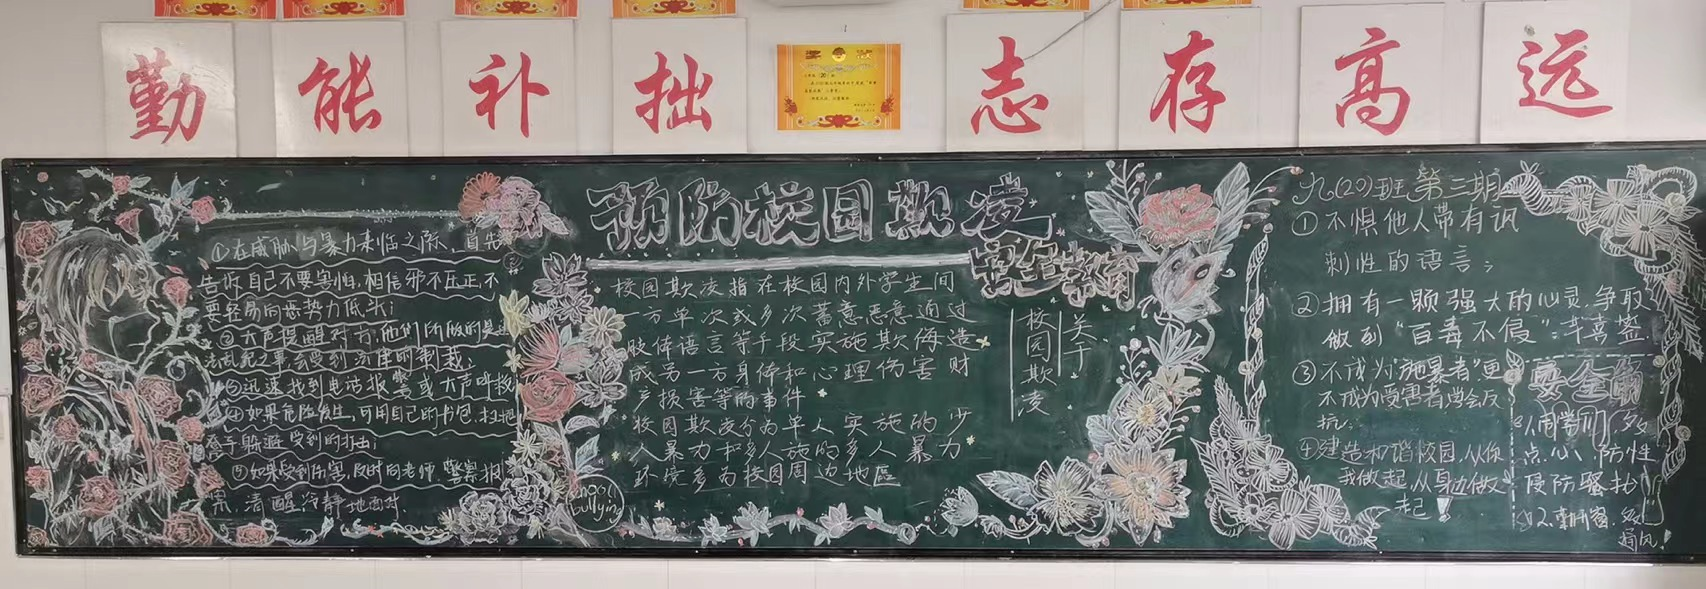 勤能补拙
志存高远
预防校园欺凌
安全教育
①在威胁与暴力来临之际、首先
告诉自己不要害怕,相信邪不压正,不
要轻易向恶势力低头;
②大声提醒对方,他们所做的是违
法乱纪之事会受到法律的制裁;
③迅速找到电话报警或大声呼救
④如果危险发生,可用自己的书包、扫把
躲避受到的打击;
⑤如果受到伤害,及时向老师、警察报
案,清醒冷静地面对.
校园欺凌指在校园内外学生间
一方单次或多次蓄意恶意通过
肢体语言等手段实施欺侮造
成另一方身体和心理伤害财
产损害等的事件
校园欺凌分为单人实施的少
人暴力和多人施的多人暴力
环境多为校园周边地區
关于
校园欺凌
school
bullying
九.(20)班 第三期
①不惧他人带有讽
刺性的语言;
②拥有一颗强大的心灵,争取
做到“百毒不侵”
③不成为“施暴者”更
不成为受害者学会反
抗;
④建造和谐校园,从你
我做起,从身边做
起!
安全
1.同学们多
点心、防性
侵防骚扰
2.勤开窗、多
通风!